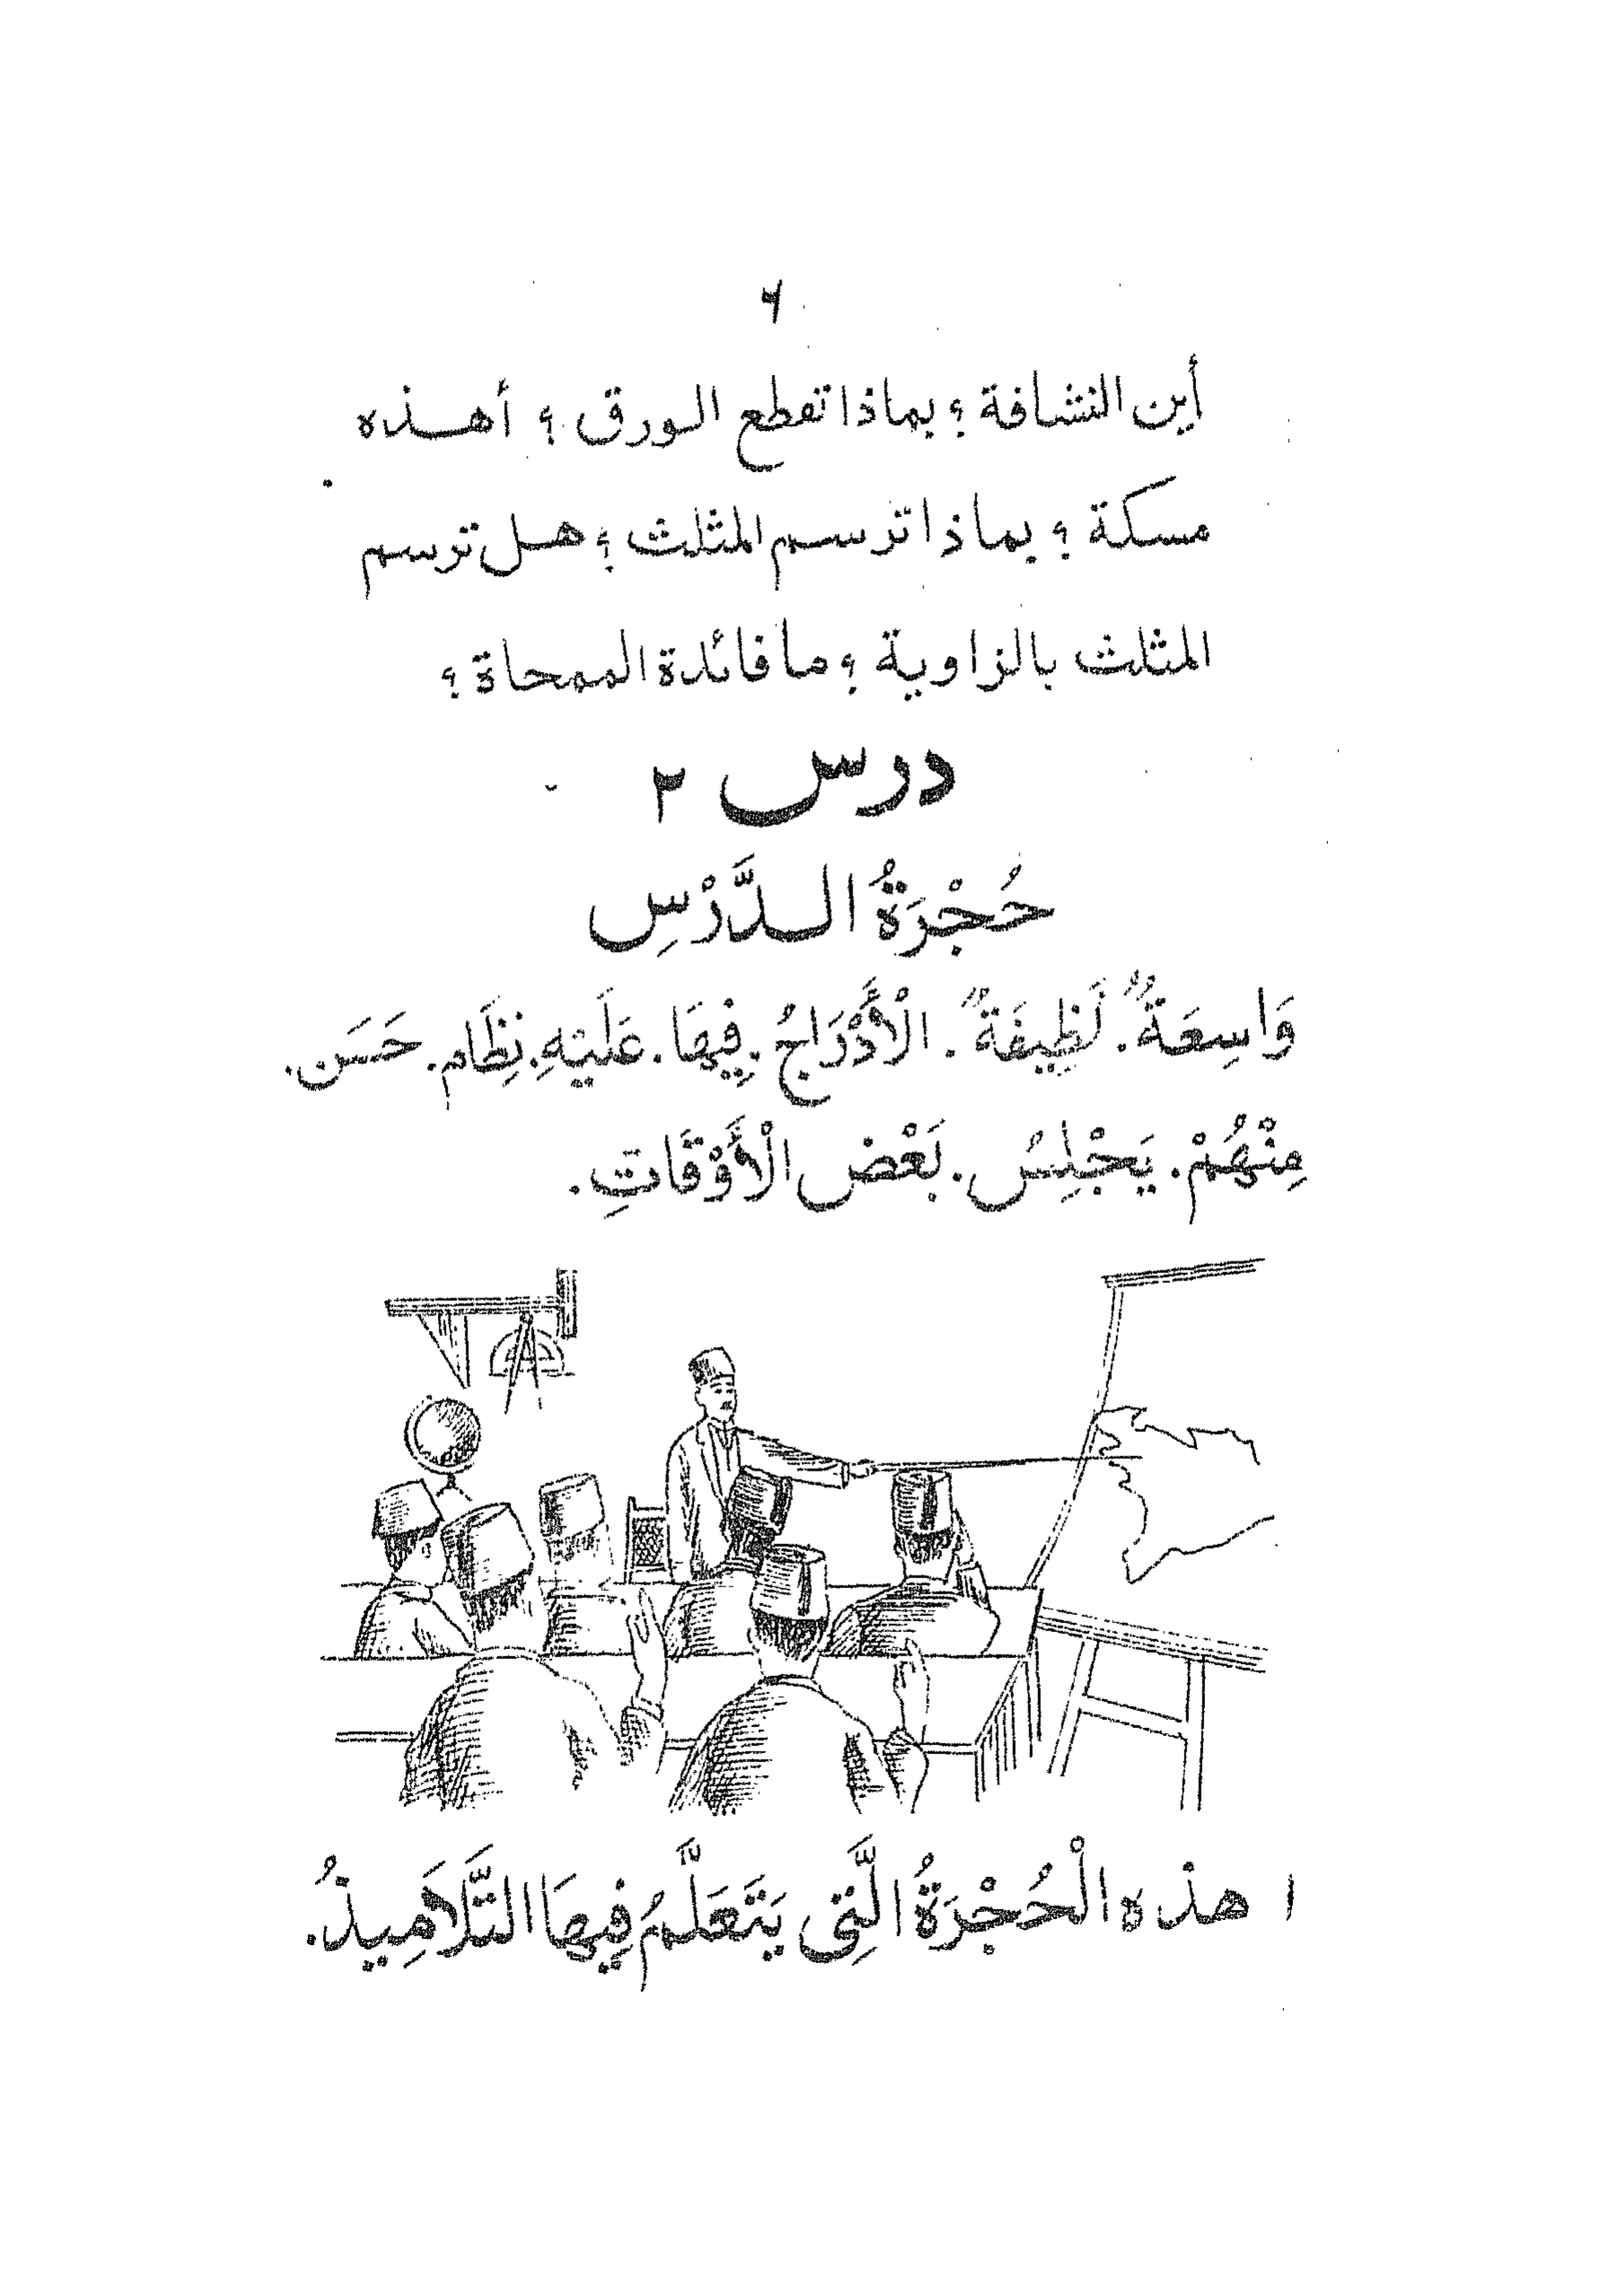 ٦
أين النشافة ؟ بماذا تقطع الورق ؟ أهذه
مسكة ؟ بماذا ترسم المثلث ؟ هل ترسم
المثلث بالزاوية ؟ ما فائدة الممحاة ؟
درس ٢
حُجْرَةُ الدَّرْسِ
وَاسِعَةٌ. نَظِيفَةٌ. الْأَدْرَاجُ. فِيهَا. عَلَيْهِ. نِظَام. حَسَن.
مِنْهُمْ. يَجْلِسُ. بَعْض الْأَوْقَاتِ.
١ هذه الْحُجْرَةُ الَّتِي يَتَعَلَّمُ فِيهَا التَّلَامِيذُ.